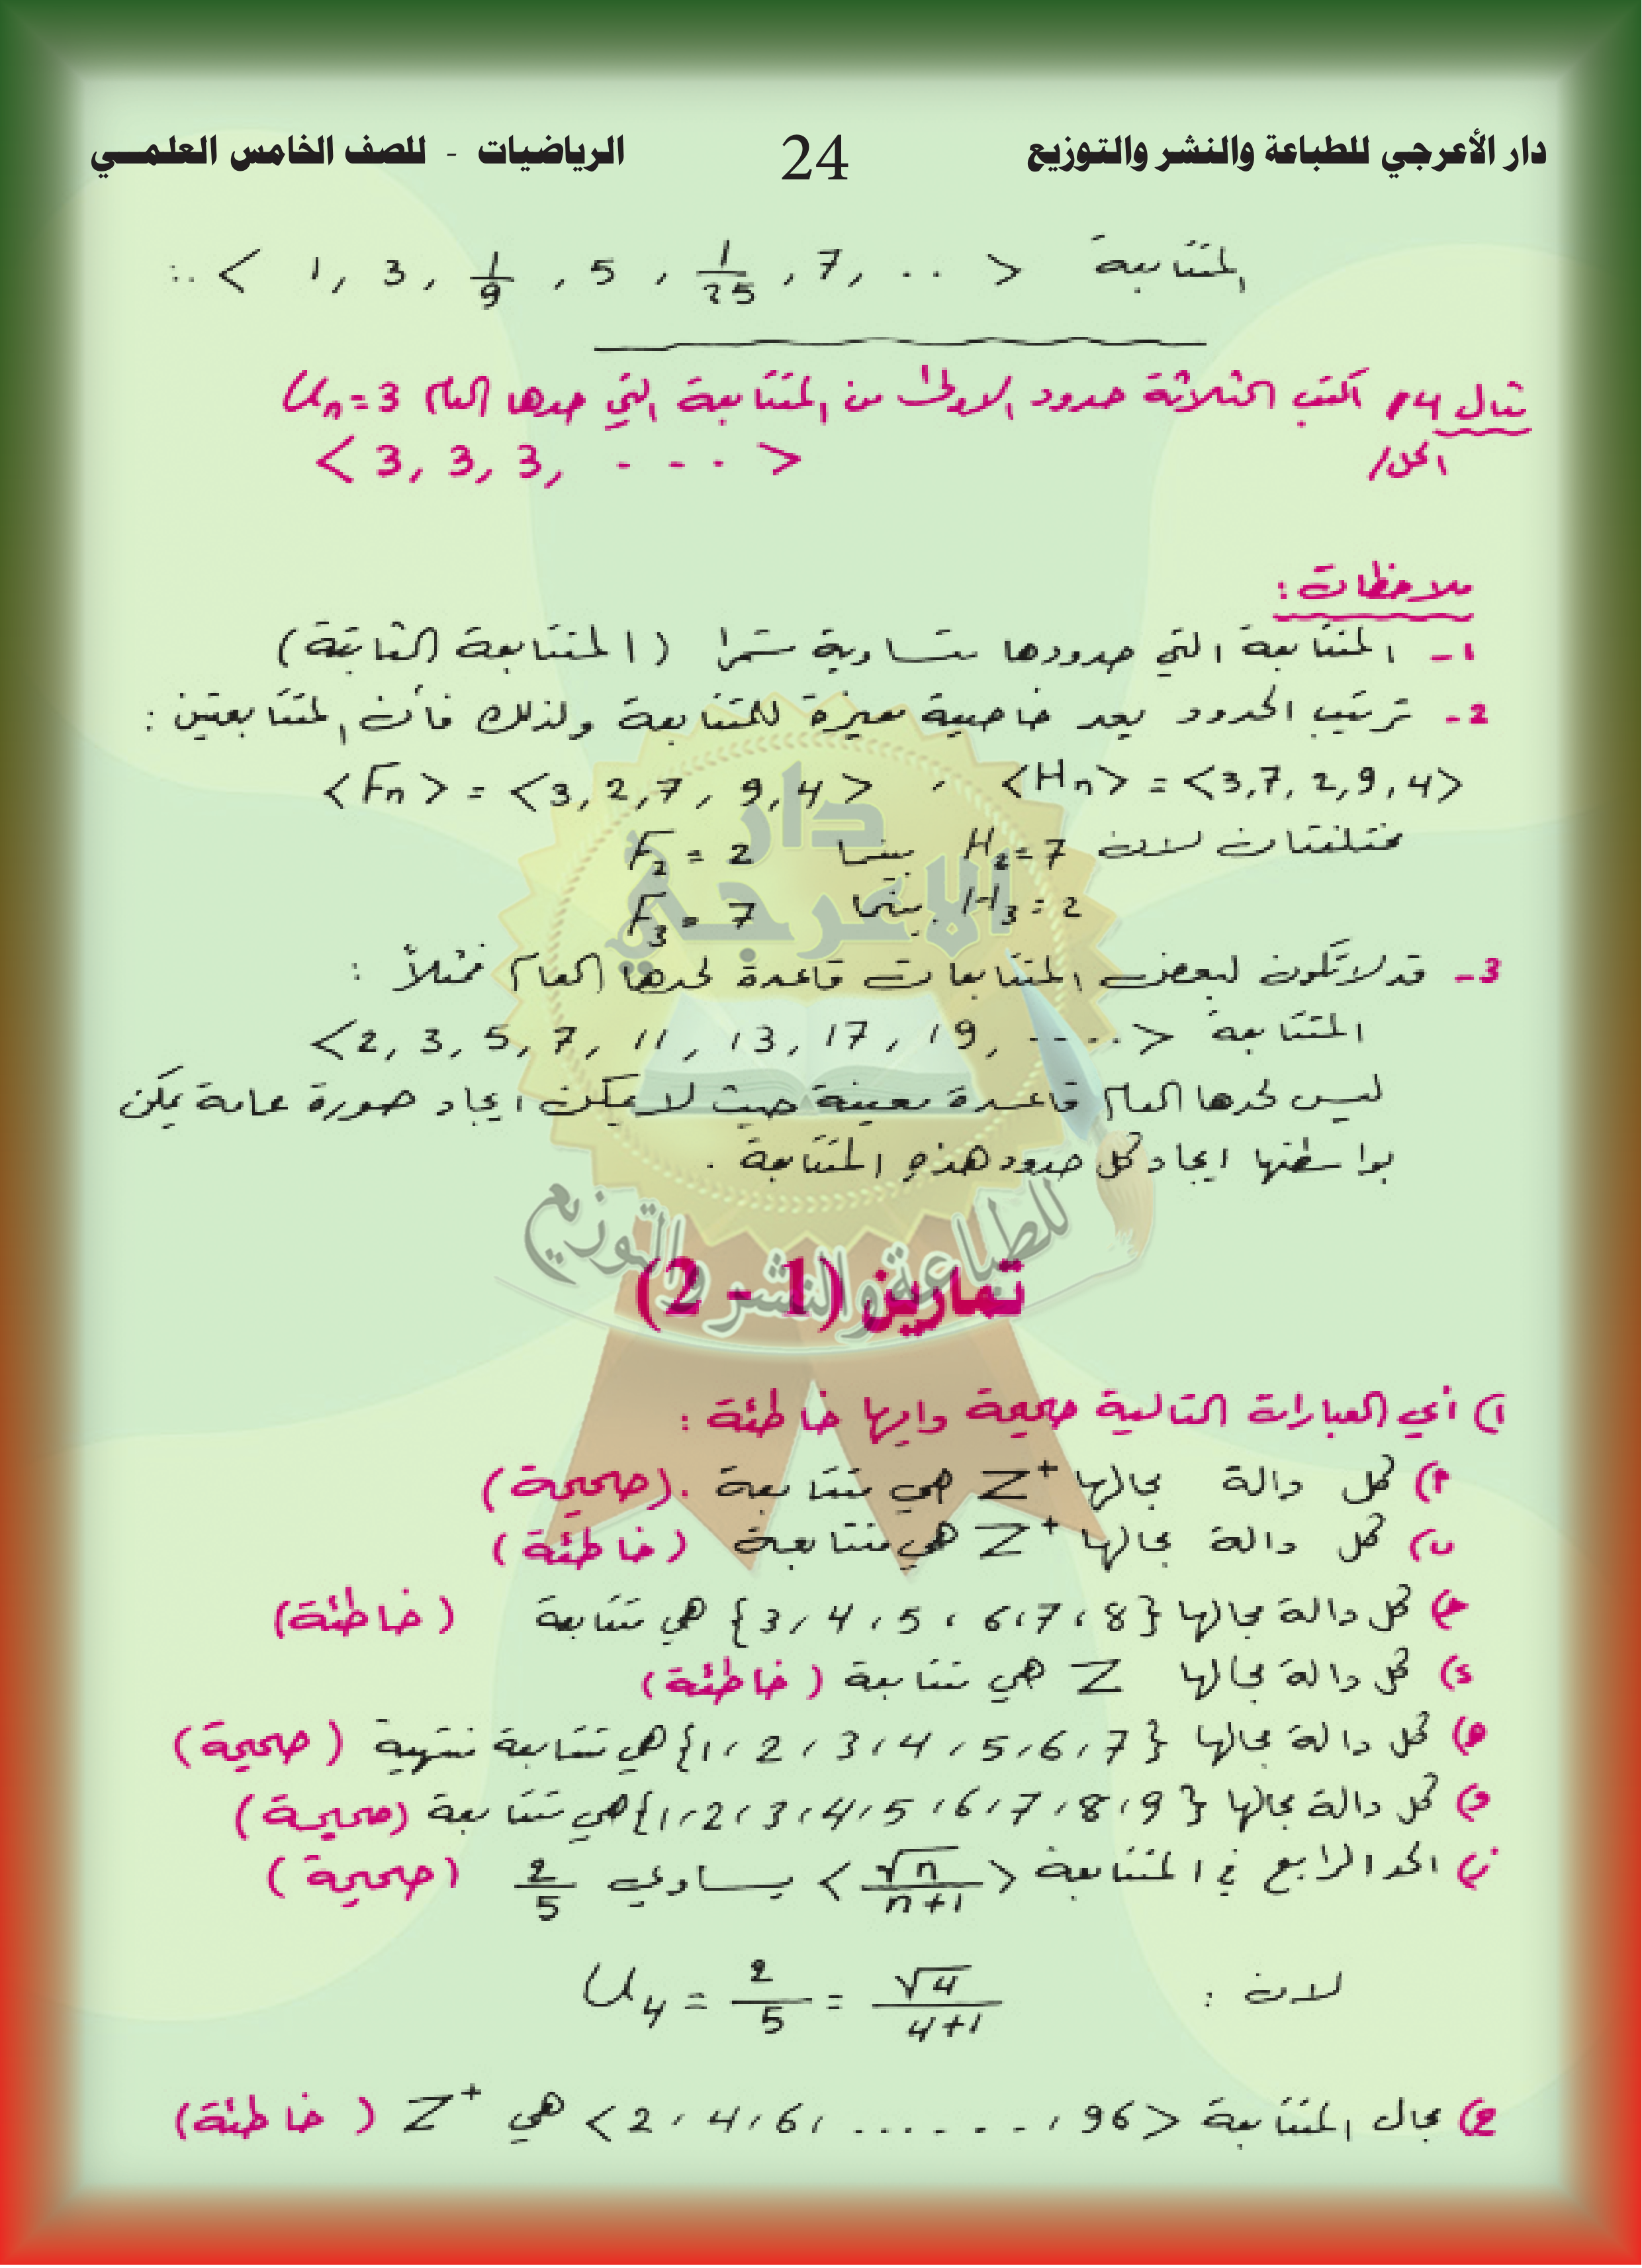 دار الأعرجي للطباعة والنشر والتوزيع 24 الرياضيات - للصف الخامس العلمي
∴ المتتابعة < 1, 3, 1/9, 5, 1/25, 7, .. >
مثال 14 / اكتب الثلاثة حدود الاولى من المتتابعة التي حدها العام Un=3
الحل / < 3, 3, 3, - - - >
ملاحظات :
1- المتتابعة التي حدودها متساوية تسمى (المتتابعة الثابتة)
2- ترتيب الحدود يعد خاصية مميزة للمتتابعة ولذلك فأن المتتابعتين :
<Fn> = <3, 2, 7, 9, 4> , <Hn> = <3, 7, 2, 9, 4>
مختلفتان لان H2=7 بينما F2 = 2
H3=2 بينما F3 = 7
3- قد لا تكون لبعض المتتابعات قاعدة لحدها العام فمثلاً :
المتتابعة <2, 3, 5, 7, 11, 13, 17, 19, ----->
ليس لحدها العام قاعدة معينة حيث لا يمكن ايجاد صورة عامة يمكن
بواسطتها ايجاد كل حدود هذه المتتابعة .
دار الاعرجي
للطباعة والنشر والتوزيع
تمارين (1 - 2)
1) أي العبارات التالية صحيحة وايها خاطئة :
أ) كل دالة مجالها Z+ هي متتابعة . (صحيحة)
ب) كل دالة مجالها Z+ هي متتابعة (خاطئة)
ج) كل دالة مجالها {3, 4, 5, 6, 7, 8} هي متتابعة (خاطئة)
د) كل دالة مجالها Z هي متتابعة (خاطئة)
هـ) كل دالة مجالها {1, 2, 3, 4, 5, 6, 7} هي متتابعة منتهية (صحيحة)
و) كل دالة مجالها {1, 2, 3, 4, 5, 6, 7, 8, 9} هي متتابعة (صحيحة)
ز) الحد الرابع في المتتابعة <√n/(n+1)> يساوي 2/5 (صحيحة)
لان : U4 = 2/5 = √4/(4+1)
ح) مجال المتتابعة <2, 4, 6, ......., 96> هي Z+ (خاطئة)